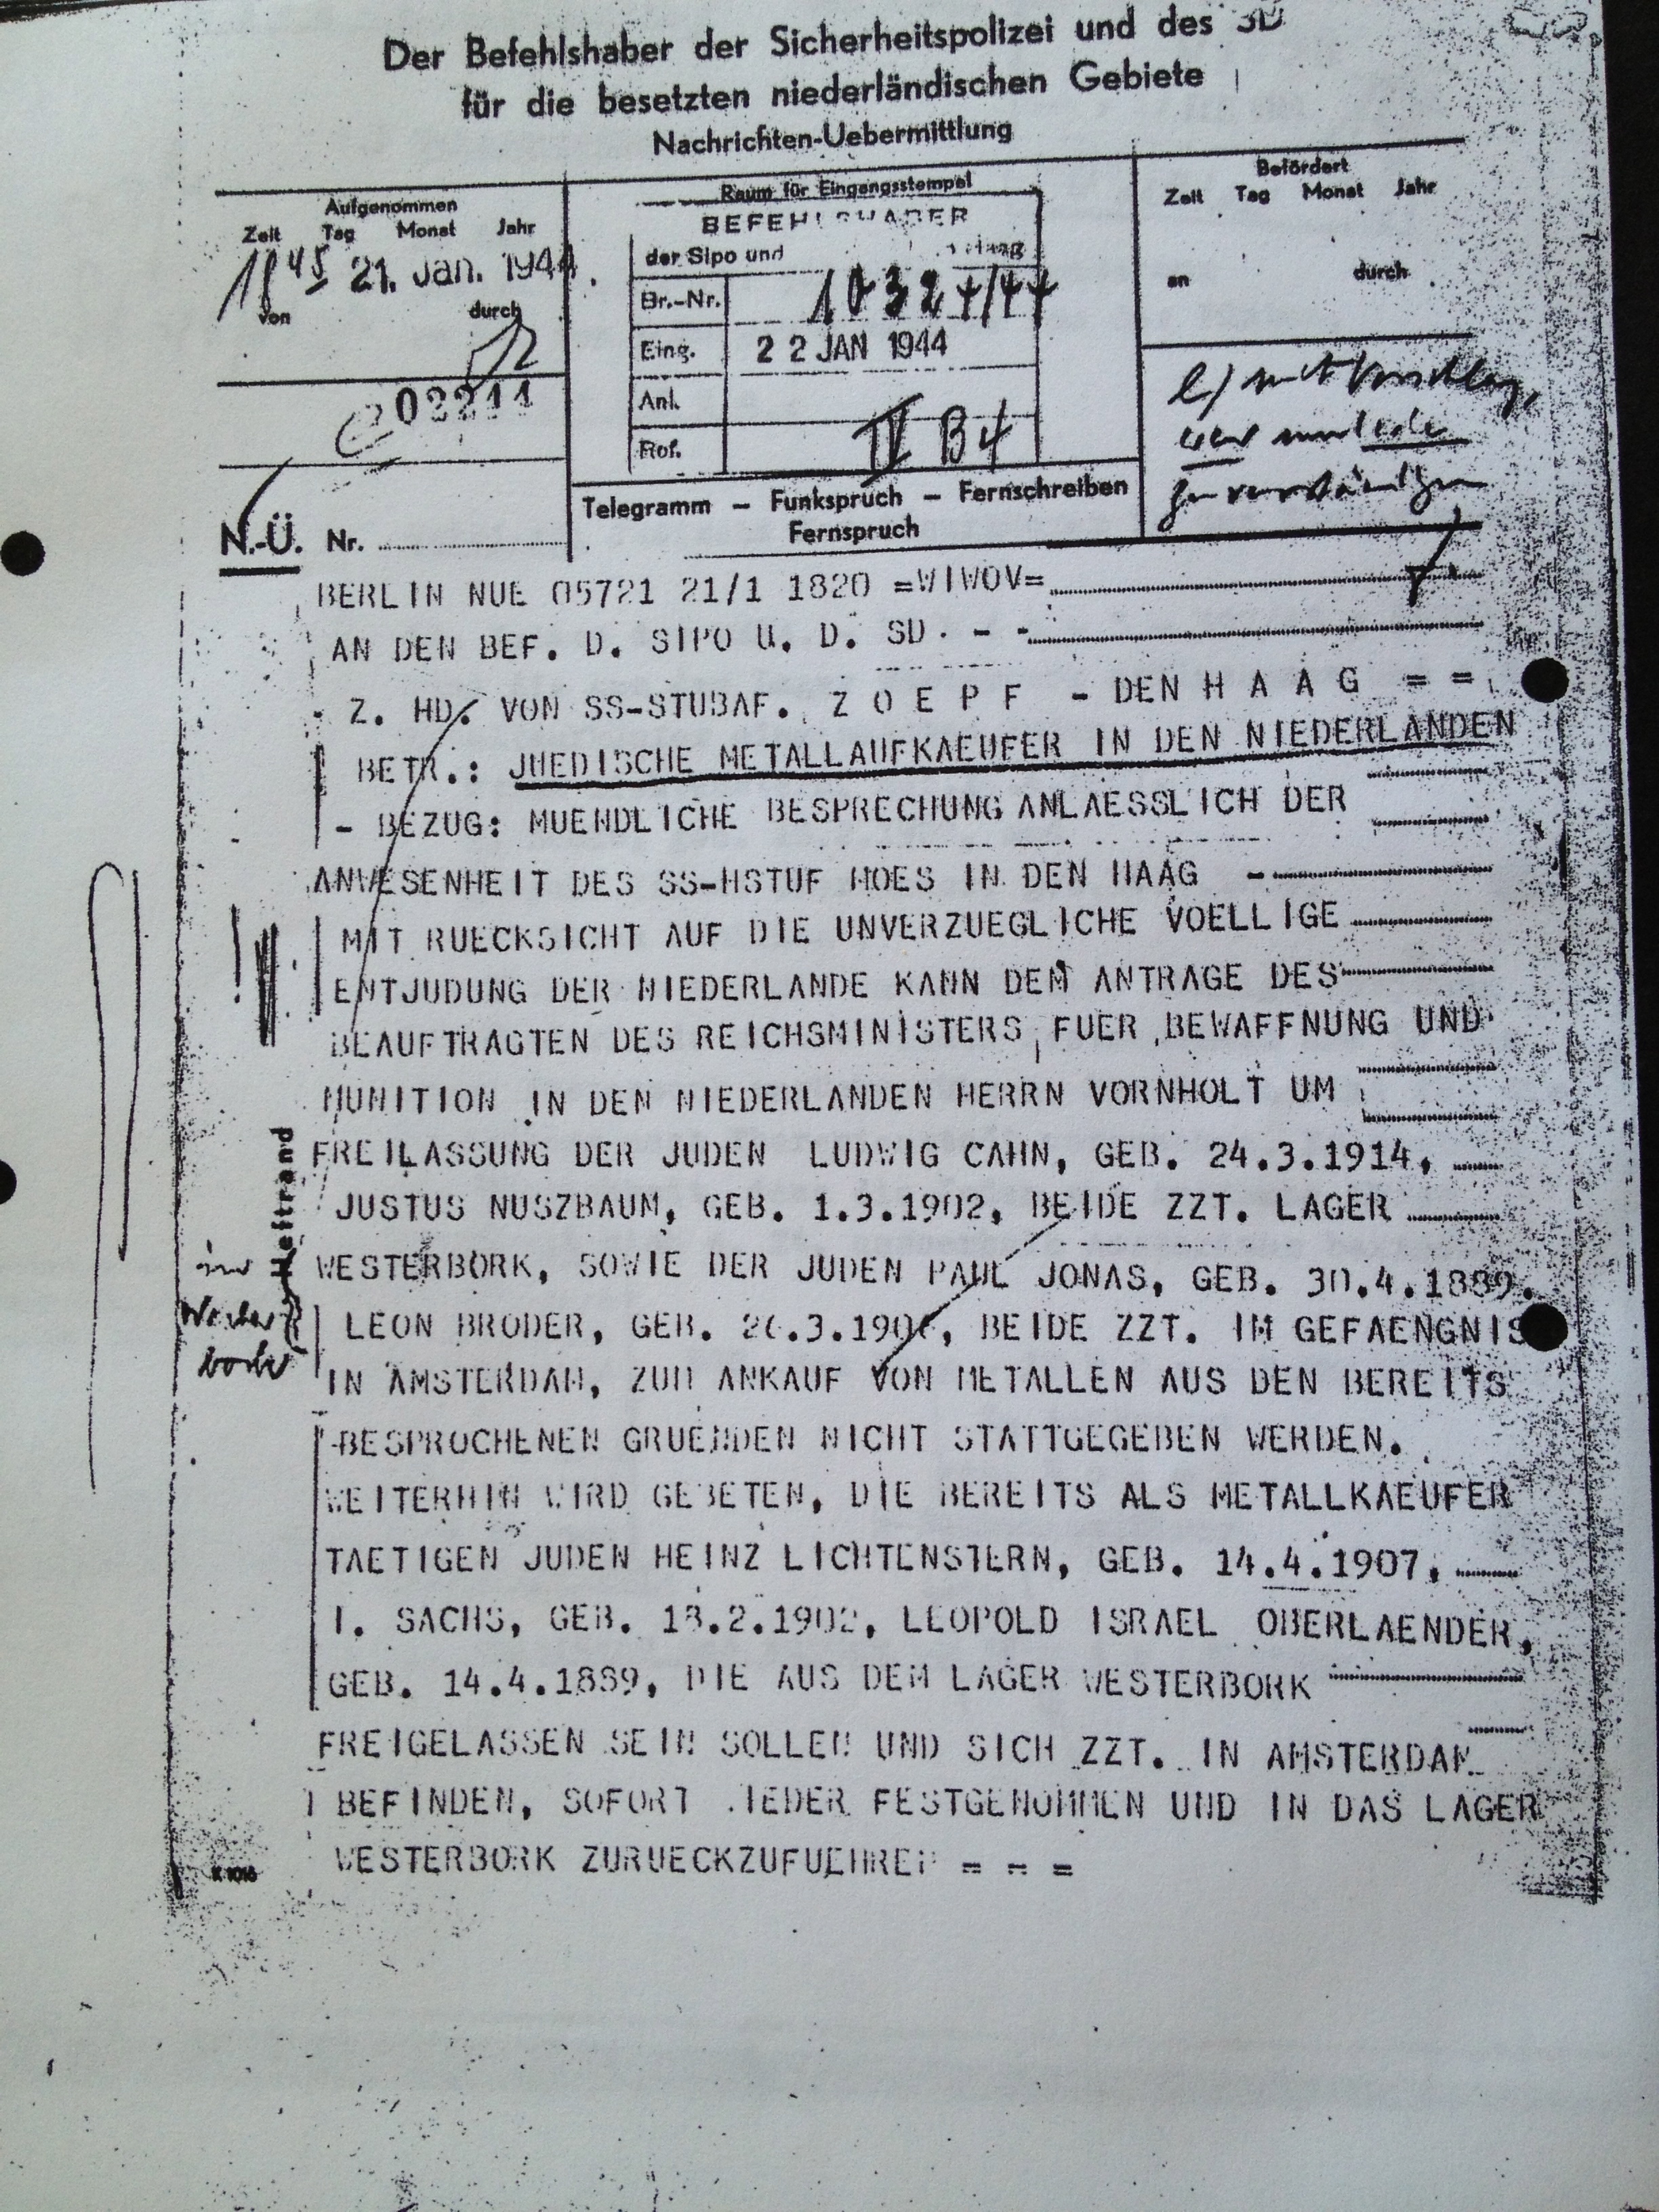 Der Befehlshaber der Sicherheitspolizei und des SD
für die besetzten niederländischen Gebiete
Nachrichten-Uebermittlung
Aufgenommen
Zeit Tag Monat Jahr
18 45 21. Jan. 1944
von durch
02211
N.-Ü. Nr.
Raum für Eingangsstempel
BEFEHLSHABER
der Sipo und Haag
Br.-Nr.
Eing. 22 JAN 1944
Anl.
Ref. IV B4
Telegramm – Funkspruch – Fernschreiben
Fernspruch
Befördert
Zeit Tag Monat Jahr
an durch
BERLIN NUE 05721 21/1 1820 =WIWOV=
AN DEN BEF. D. SIPO U. D. SD. - -
- Z. HD. VON SS-STUBAF. Z O E P F - DEN H A A G = =
BETR.: JUEDISCHE METALLAUFKAEUFER IN DEN NIEDERLANDEN
- BEZUG: MUENDLICHE BESPRECHUNG ANLAESSLICH DER
ANWESENHEIT DES SS-HSTUF MOES IN DEN HAAG -
MIT RUECKSICHT AUF DIE UNVERZUEGLICHE VOELLIGE
ENTJUDUNG DER NIEDERLANDE KANN DEM ANTRAGE DES
BEAUFTRAGTEN DES REICHSMINISTERS FUER BEWAFFNUNG UND
MUNITION IN DEN NIEDERLANDEN HERRN VORNHOLT UM
FREILASSUNG DER JUDEN LUDWIG CAHN, GEB. 24.3.1914,
JUSTUS NUSZBAUM, GEB. 1.3.1902, BEIDE ZZT. LAGER
WESTERBORK, SOWIE DER JUDEN PAUL JONAS, GEB. 30.4.1889.
LEON BRODER, GEB. BEIDE ZZT. IM GEFAENGNIS
IN AMSTERDAM, ZUM ANKAUF VON METALLEN AUS DEN BEREITS
BESPROCHENEN GRUENDEN NICHT STATTGEGEBEN WERDEN.
WEITERHIN WIRD GEBETEN, DIE BEREITS ALS METALLKAEUFER
TAETIGEN JUDEN HEINZ LICHTENSTERN, GEB. 14.4.1907,
I. SACHS, GEB. 18.2.1902, LEOPOLD ISRAEL OBERLAENDER,
GEB. 14.4.1889, DIE AUS DEM LAGER WESTERBORK
FREIGELASSEN SEIN SOLLEN UND SICH ZZT. IN AMSTERDAM
BEFINDEN, SOFORT WIEDER FESTGENOMMEN UND IN DAS LAGER
WESTERBORK ZURUECKZUFUEHREN = = =
Heftrand
K 1016